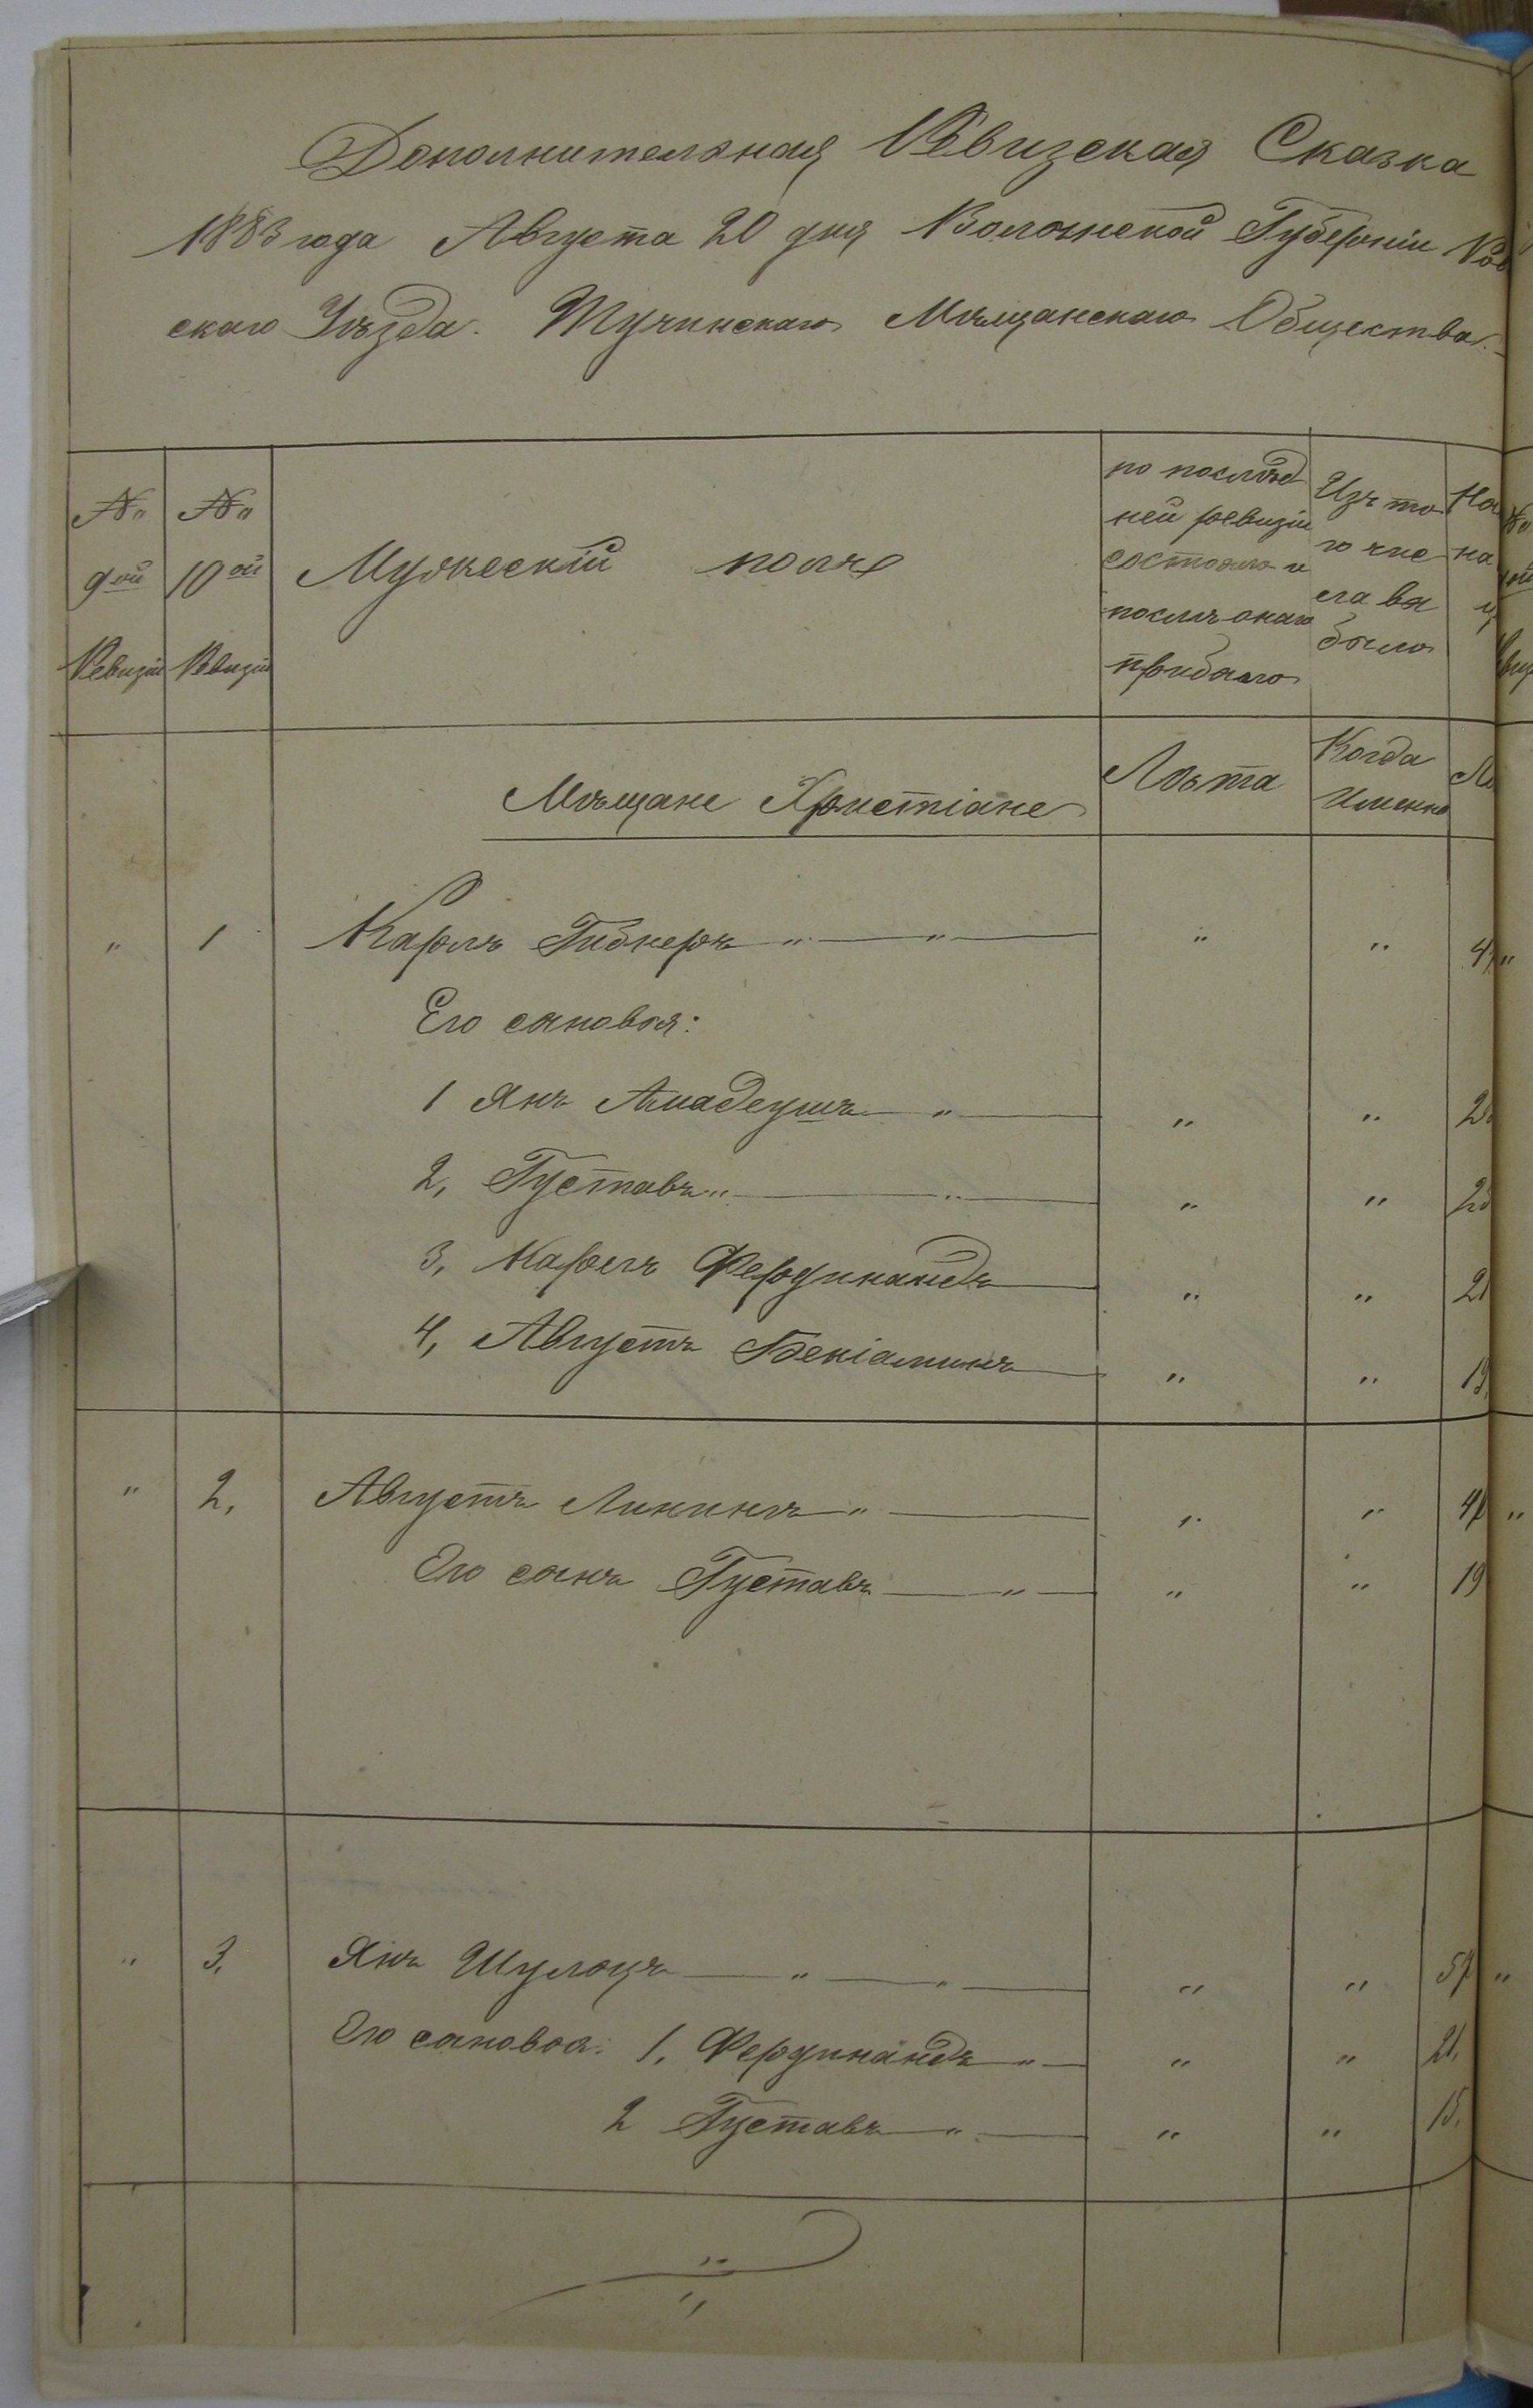 Дополнительная Ревизская Сказка
1883 года Августа 20 дня Волынской Губерніи Ров
скаго Уѣзда. Тучинскаго Мѣщанскаго Общества.
№ 9ой Ревизіи
№ 10ой Ревизіи
Мужескій полъ
по послѣд
ней ревизіи
состояло и
послѣ онаго
прибыло
Изъ то
го чис
ла вы
было
На
на
Мѣщане Христіане
Лѣта
Когда
Именно
" 1 Карлъ Гибнеръ " " " "
Его сыновья:
1 Янъ Амадеушъ " " "
2, Густавъ " " " "
3, Карлъ Фердинандъ " " 21
4, Августъ Беніаминъ " " 19,
" 2, Августъ Линингъ " " "
Его сынъ Густавъ " " " 19
" 3, Янъ Шульцъ " " " "
Его сыновья: 1, Фердинандъ " " " 21,
2 Густавъ " " " 15,